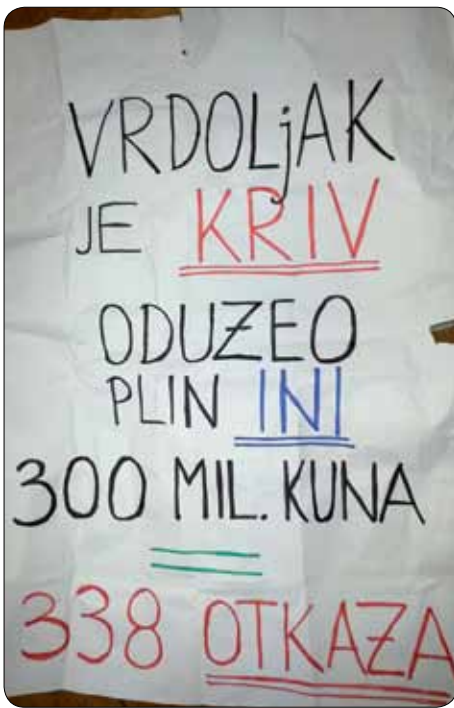 VRDOLjAK
JE KRIV
ODUZEO
PLIN INI
300 MIL. KUNA
=
338 OTKAZA